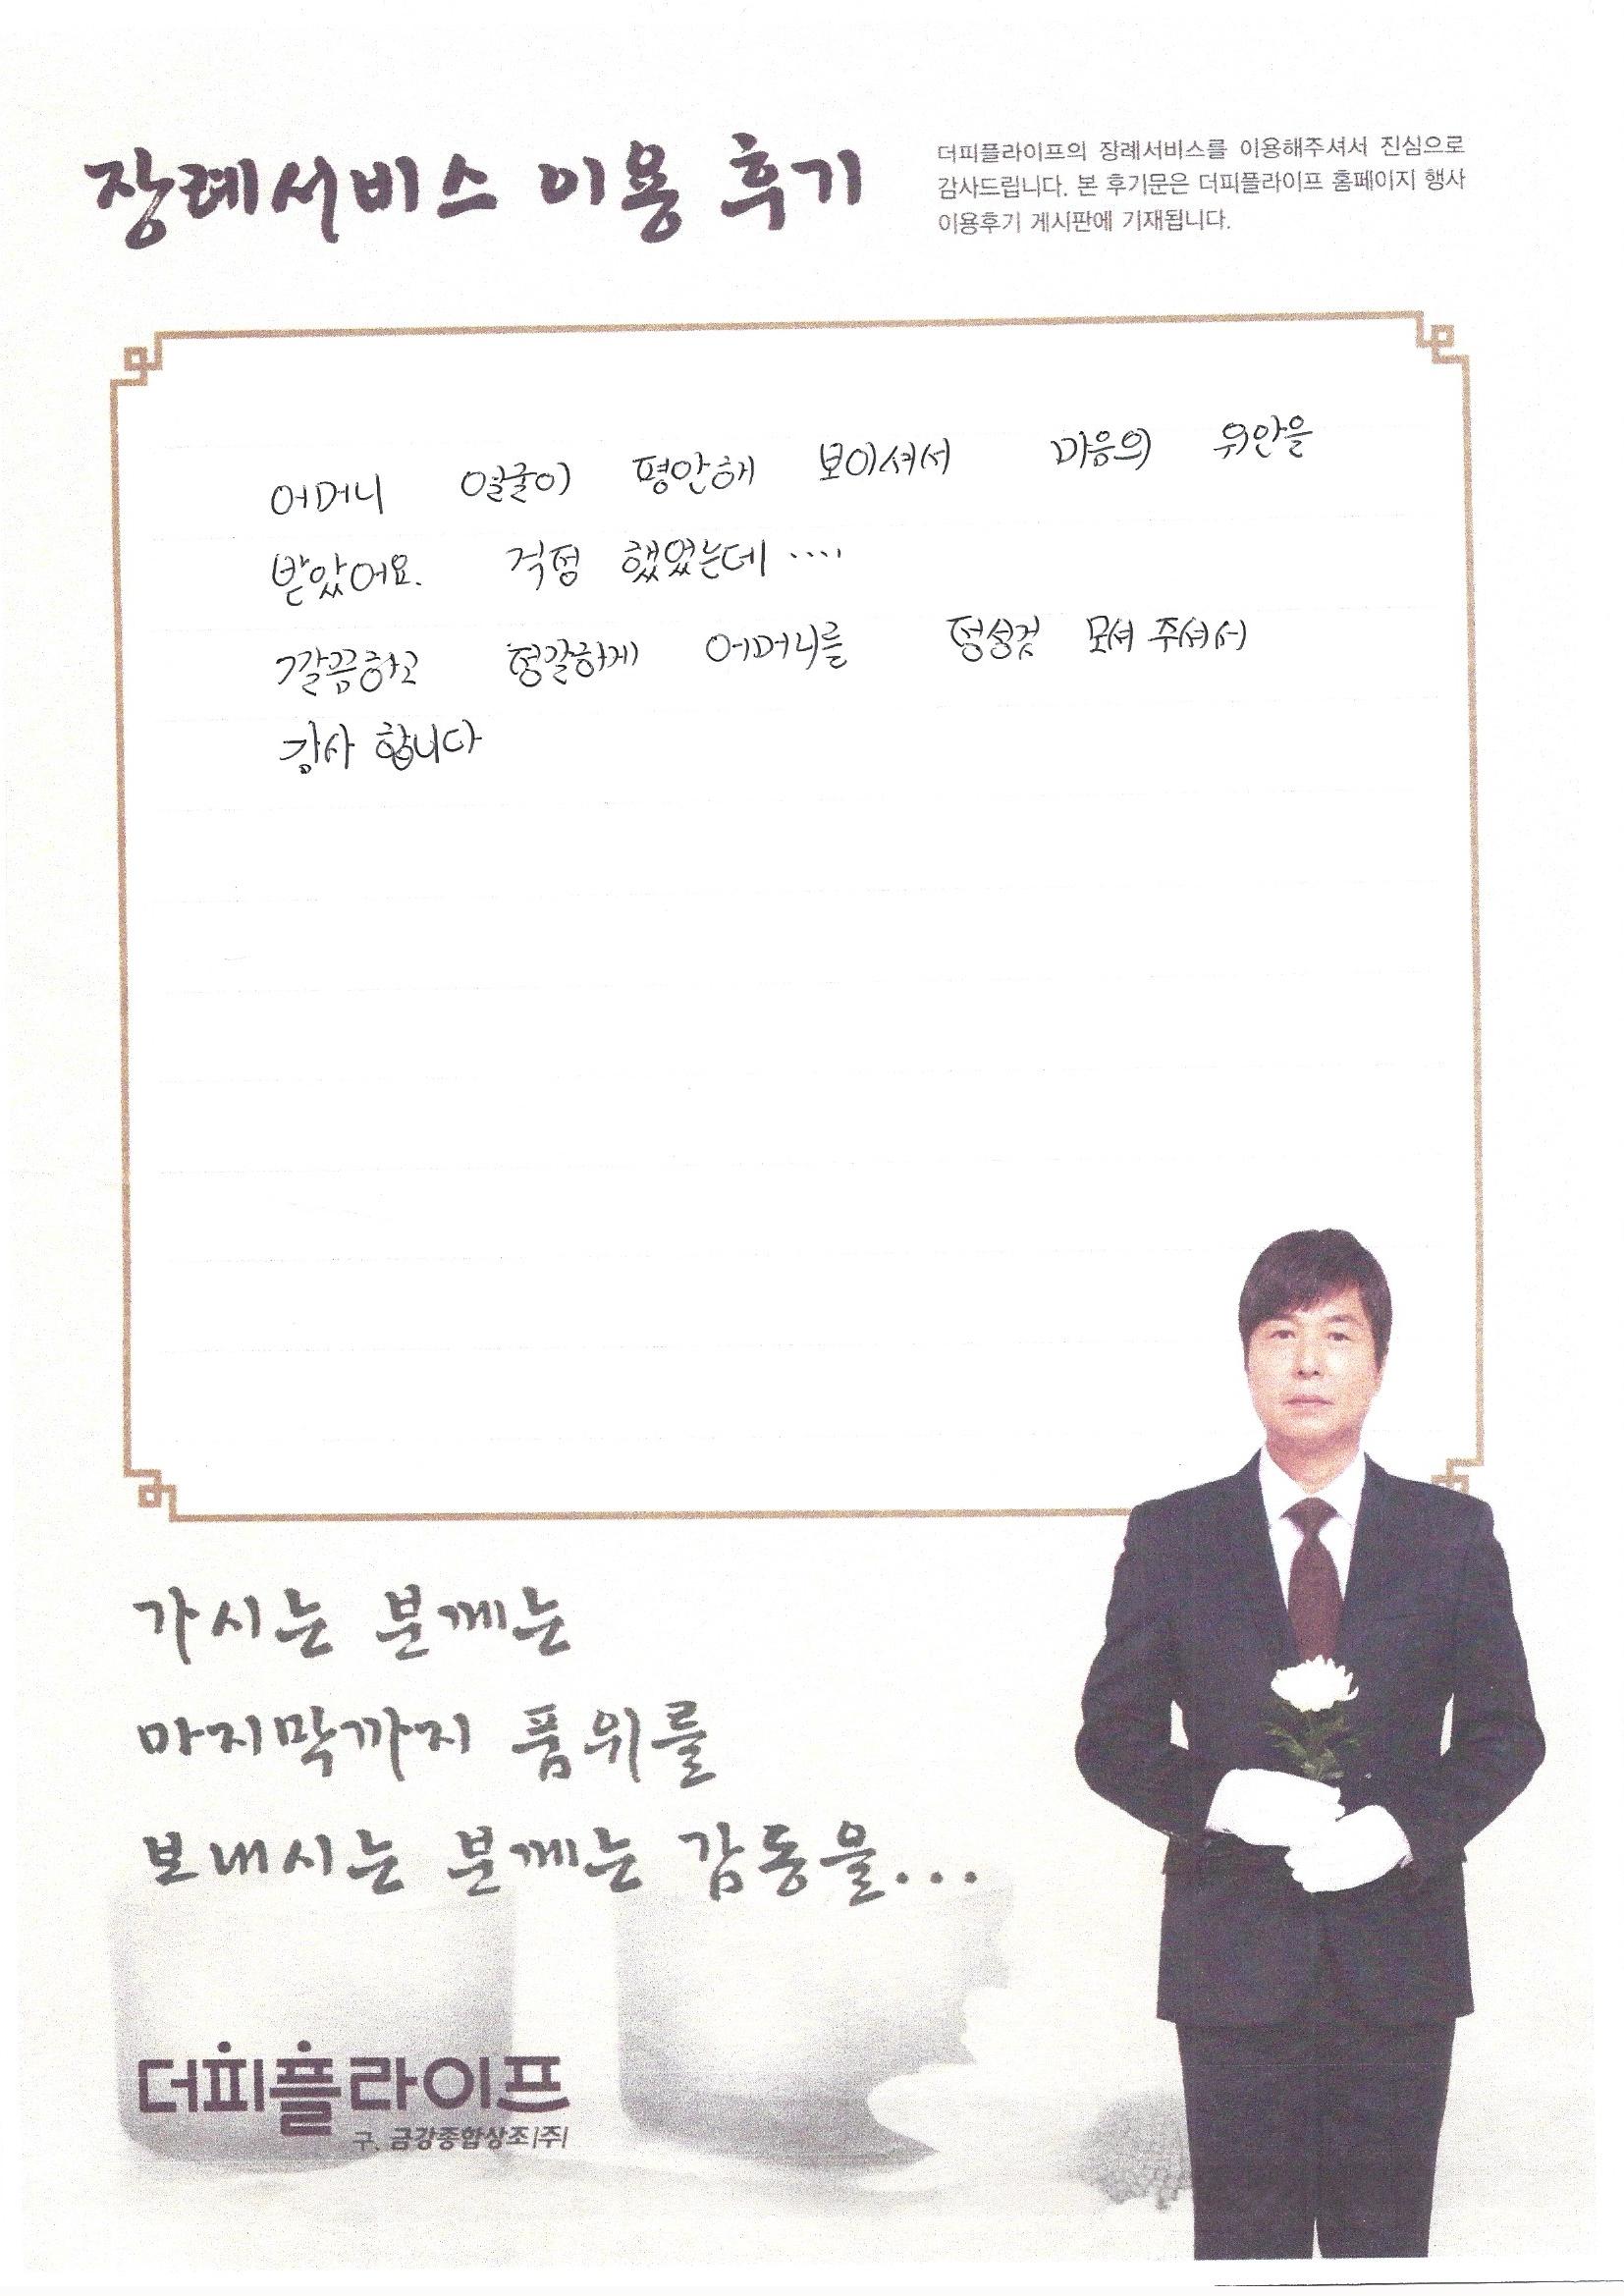 장례서비스 이용 후기
더피플라이프의 장례서비스를 이용해주셔서 진심으로
감사드립니다. 본 후기문은 더피플라이프 홈페이지 행사
이용후기 게시판에 기재됩니다.
어머니 얼굴이 평안해 보이셔서 마음의 위안을
받았어요. 걱정 했었는데 ....
깔끔하고 정갈하게 어머니를 정성껏 모셔 주셔서
감사 합니다
가시는 분께는
마지막까지 품위를
보내시는 분께는 감동을...
더피플라이프
구. 금강종합상조(주)